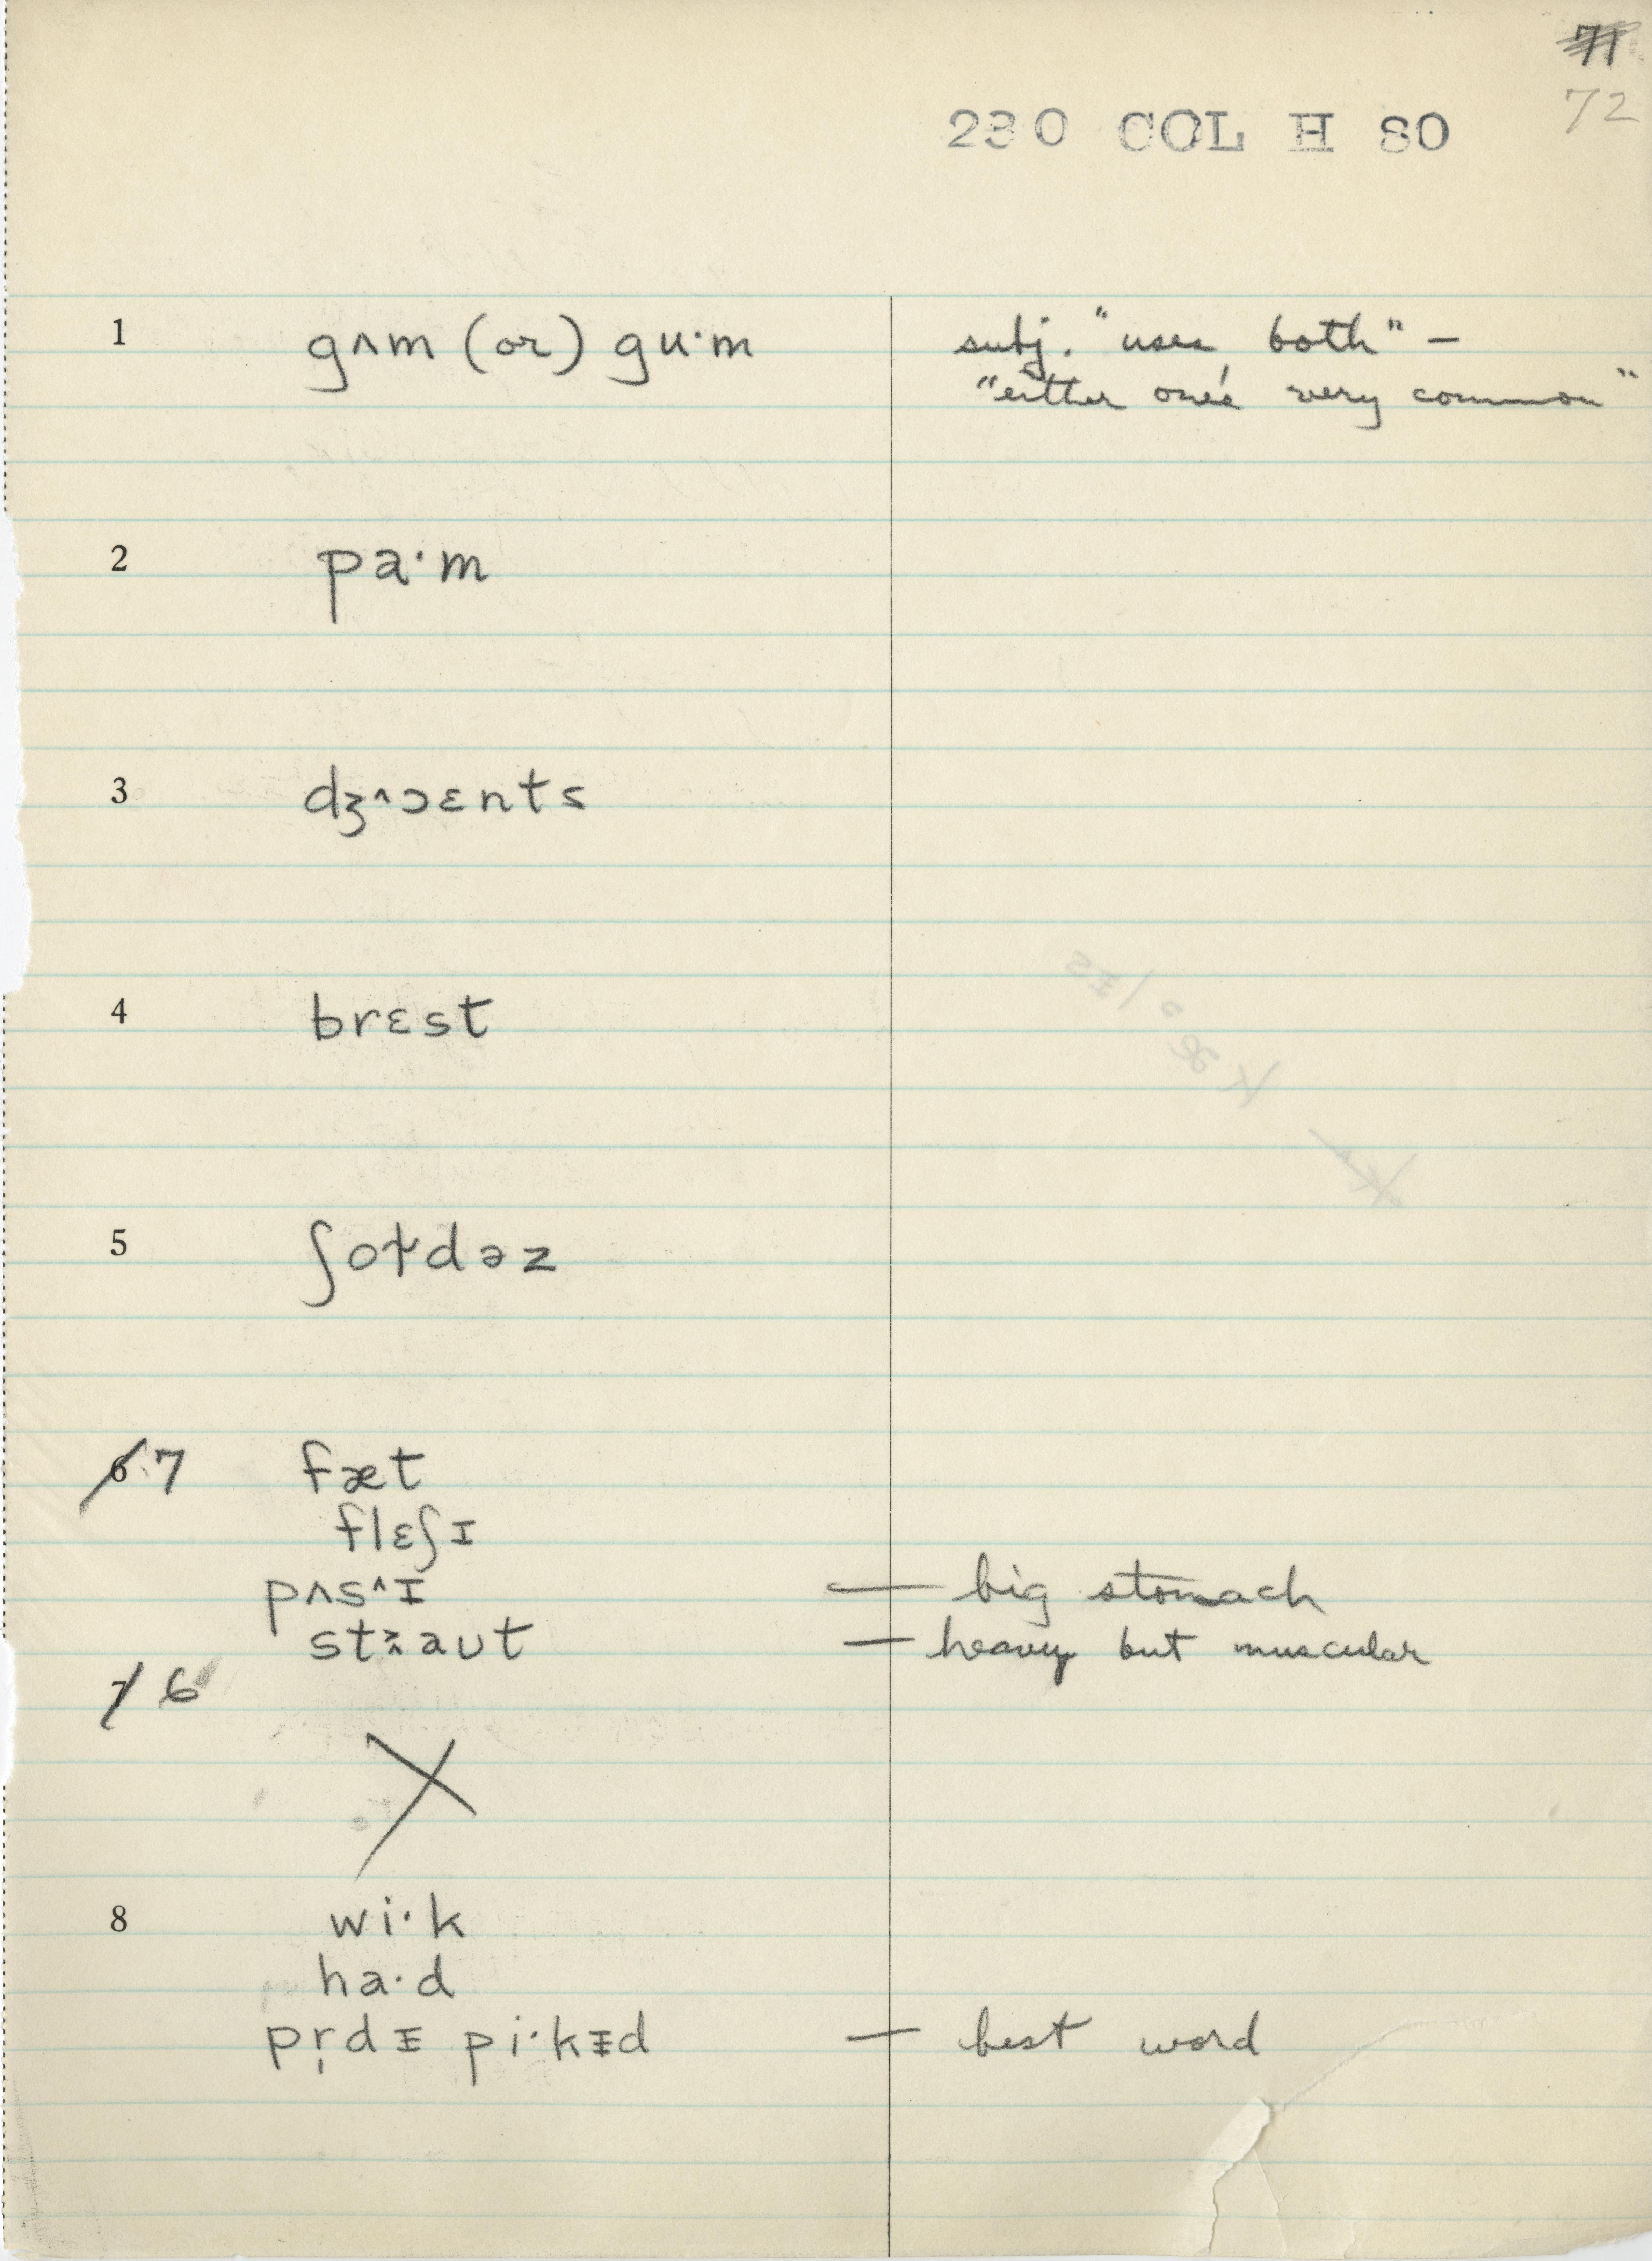 71
72
230 COL H 80
1 gʌm (or) gu·m subj. "uses both" –
"either one's very common"
2 pa·m
3 dʒ^ɔɛnts
4 brɛst
5 ʃoɫdəz
6 7 fæt
flɛʃɪ
pʌs^ɪ — big stomach
staʊt — heavy but muscular
7 6
X
8 wi·k
ha·d
pr̩dɪ pi·kɪd — best word